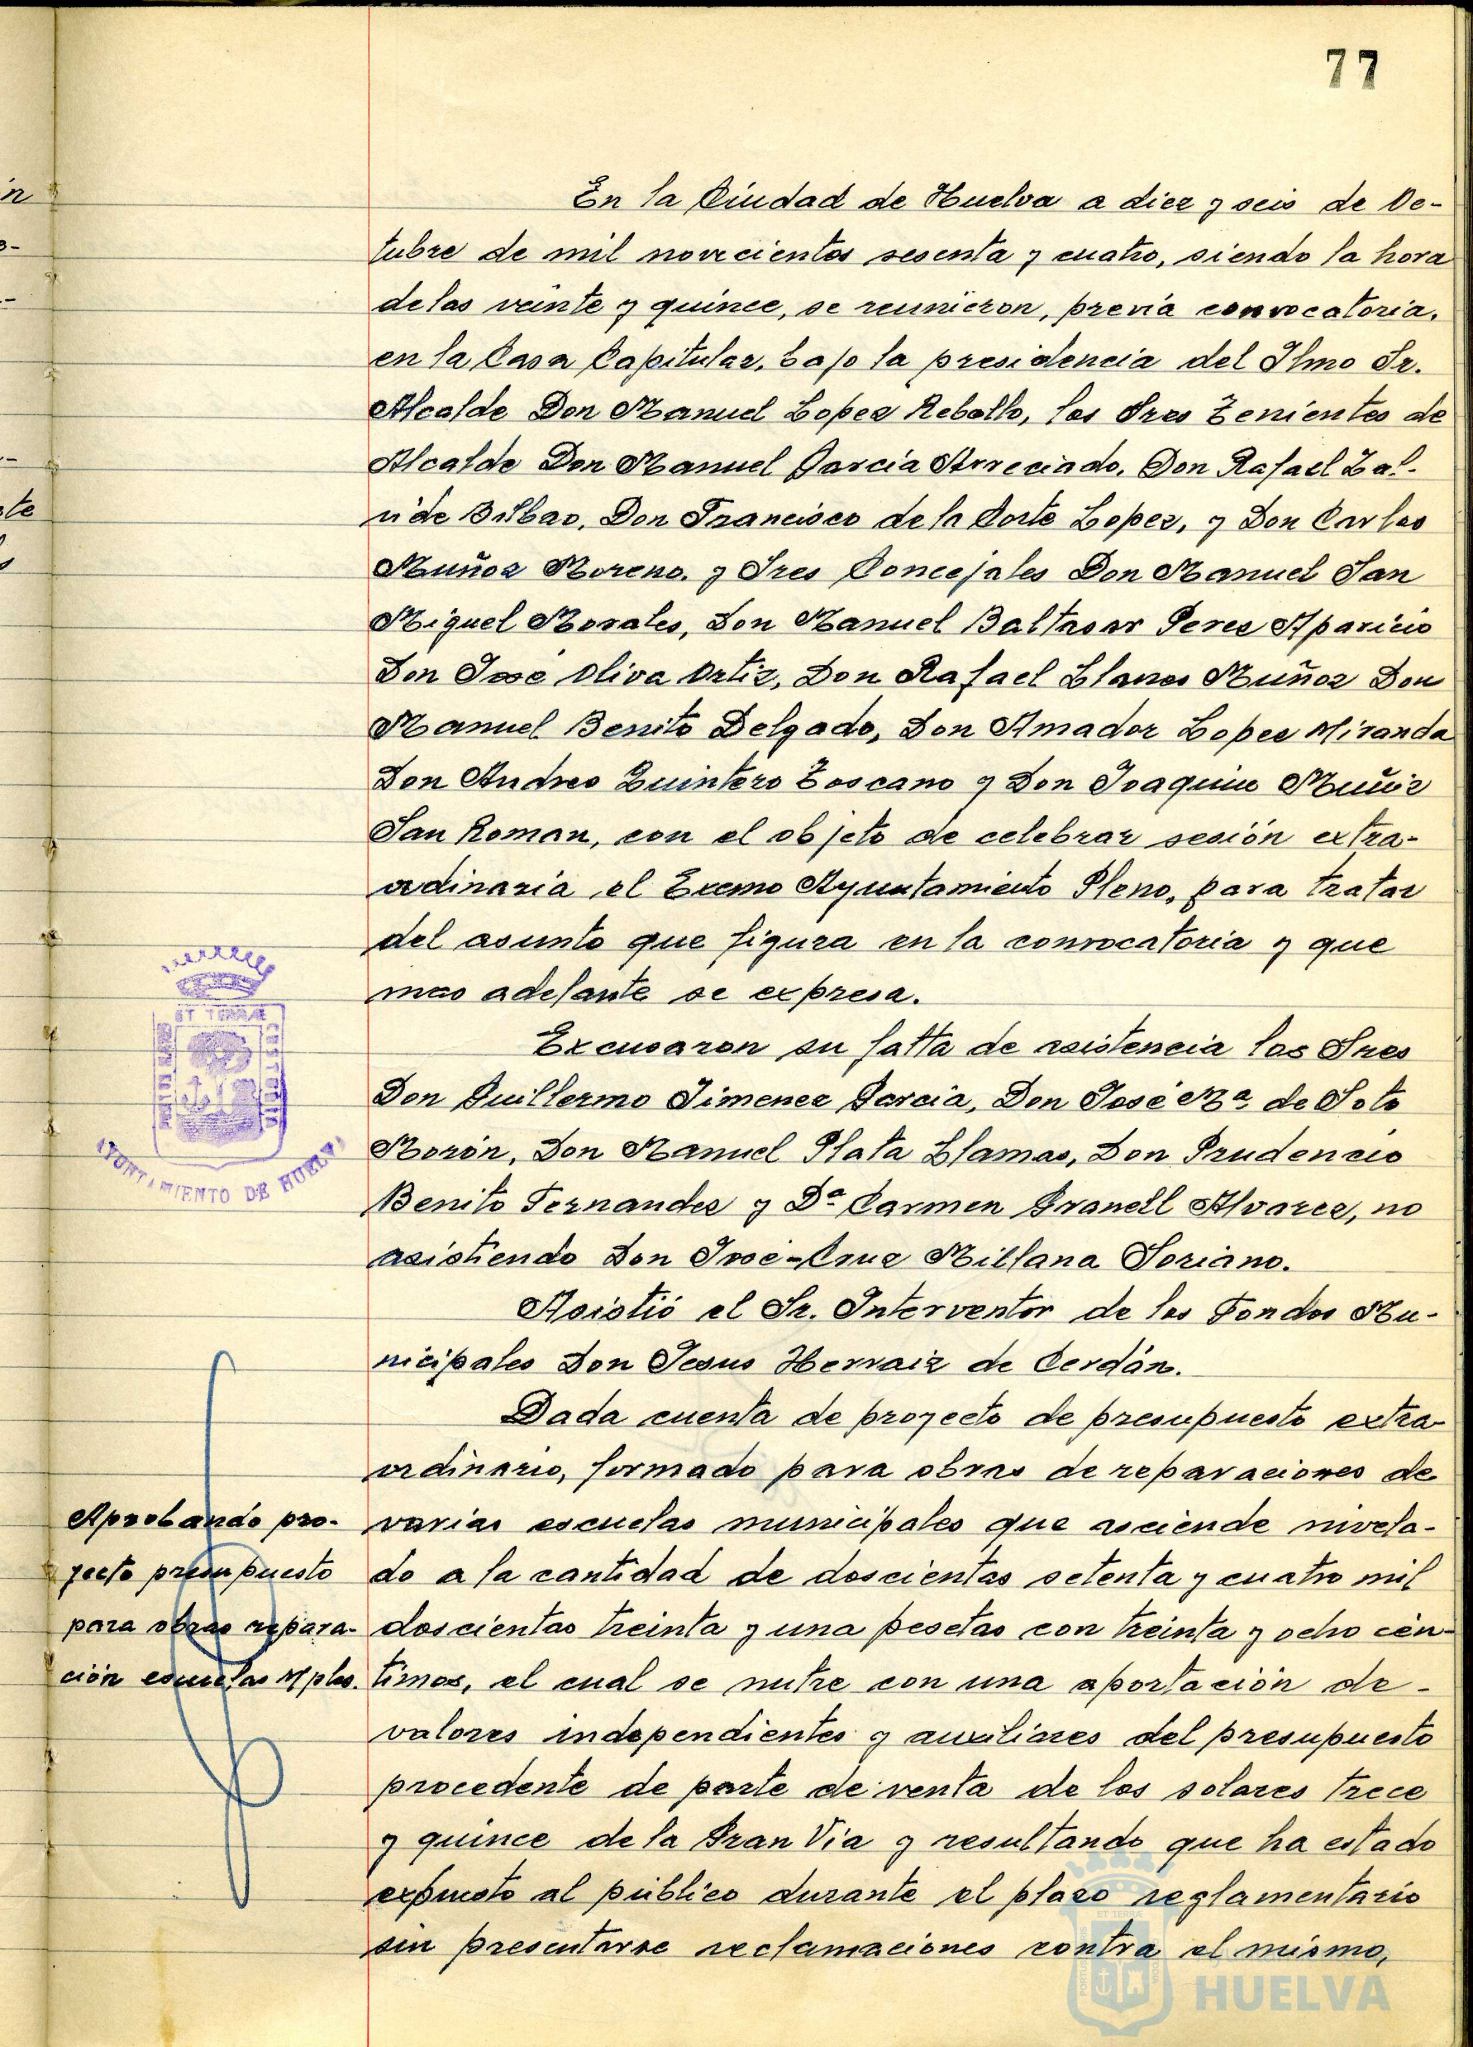 77
En la Ciudad de Huelva a diez y seis de Oc-
tubre de mil novecientos sesenta y cuatro, siendo la hora
de las veinte y quince, se reunieron, previa convocatoria,
en la Casa Capitular, bajo la presidencia del Ilmo Sr.
Alcalde Don Manuel Lopez Rebollo, los Sres Tenientes de
Alcalde Don Manuel Garcia Arreciado, Don Rafael Zal-
vide Bilbao, Don Francisco de la Corte Lopez, y Don Carlos
Muñoz Moreno, y Sres Concejales Don Manuel San
Miguel Morales, Don Manuel Baltasar Perez Aparicio
Don José Oliva Ortiz, Don Rafael Llanes Muñoz Don
Manuel Benito Delgado, Don Amador Lopez Miranda
Don Andres Quintero Toscano y Don Joaquin Muñiz
San Roman, con el objeto de celebrar sesión extra-
ordinaria el Excmo Ayuntamiento Pleno, para tratar
del asunto que figura en la convocatoria y que
mas adelante se expresa.
Excusaron su falta de asistencia los Sres
Don Guillermo Jimenez Garcia, Don José Mª de Soto
Morón, Don Manuel Plata Llamas, Don Prudencio
Benito Fernandez y Dª Carmen Granell Alvarez, no
asistiendo Don José-Cruz Millana Soriano.
Asistió el Sr. Interventor de los Fondos Mu-
nicipales Don Jesus Herraiz de Cerdán.
Dada cuenta de proyecto de presupuesto extra-
ordinario, formado para obras de reparaciones de
varias escuelas municipales que asciende nivela-
do a la cantidad de doscientas setenta y cuatro mil
doscientas treinta y una pesetas con treinta y ocho cén-
timos, el cual se nutre con una aportación de
valores independientes y auxiliares del presupuesto
procedente de parte de venta de los solares trece
y quince de la Gran Via y resultando que ha estado
expuesto al público durante el plazo reglamentario
sin presentarse reclamaciones contra el mismo,
Aprobando pro-
yecto presupuesto
para obras repara-
ción escuelas Mples.
ET TERRÆ
PORTUS MARIS
CUSTODIA
AYUNTAMIENTO DE HUELVA
HUELVA